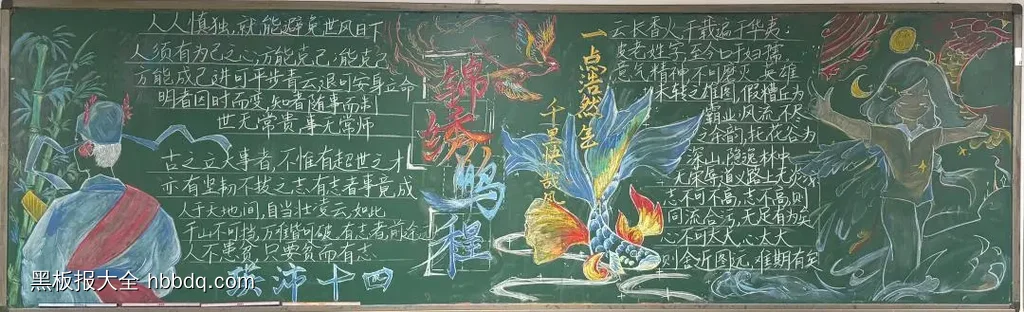 人人慎独,就能避免世风日下
人须有为己之心,方能克己;能克己
方能成己进可平步青云,退可安身立命
明者因时而变,知者随事而制
世无常贵,事无常师
古之立大事者,不惟有超世之才
亦有坚韧不拔之志有志者事竟成
人于天地间,自当壮凌云,如此
千山不可挡,万难皆可破,有志者,前途
人不患贫,只要贫而有志
锦绣鹏程
一点浩然气
千里快哉风
云长香火千载遍于华夷;
坡老姓字,至今口于妇孺
意气精神,不可磨灭,英雄
未转之雄图,假糟丘为
霸业,风流不尽
之余韵,托花谷为
深山,隐逸林中
无荣辱道义路上无炎凉
志不可不高,志不高,则
同流合污,无足有为矣
心不可太大,心太大
则舍近图远,难期有矣
黑板报大全 hbbdq.com
十四